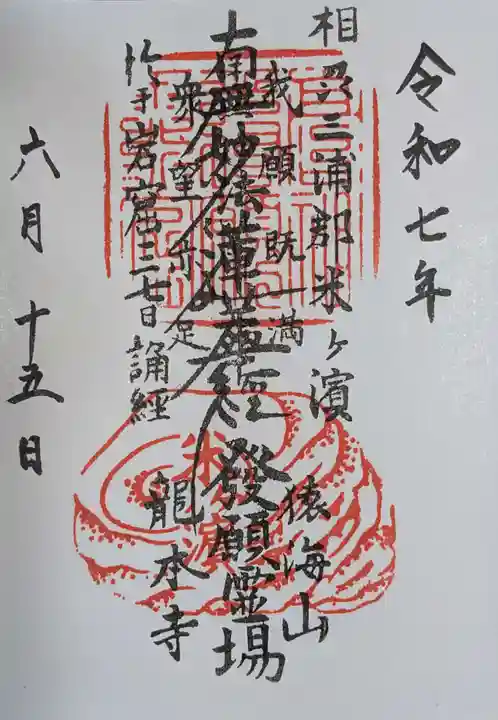 令和七年
相州三浦郡米ヶ濱
猿海山
我願既満
南無妙法蓮華経
發願霊場
衆望亦足
於岩窟三七日誦経
龍本寺
六月十五日
米
濱